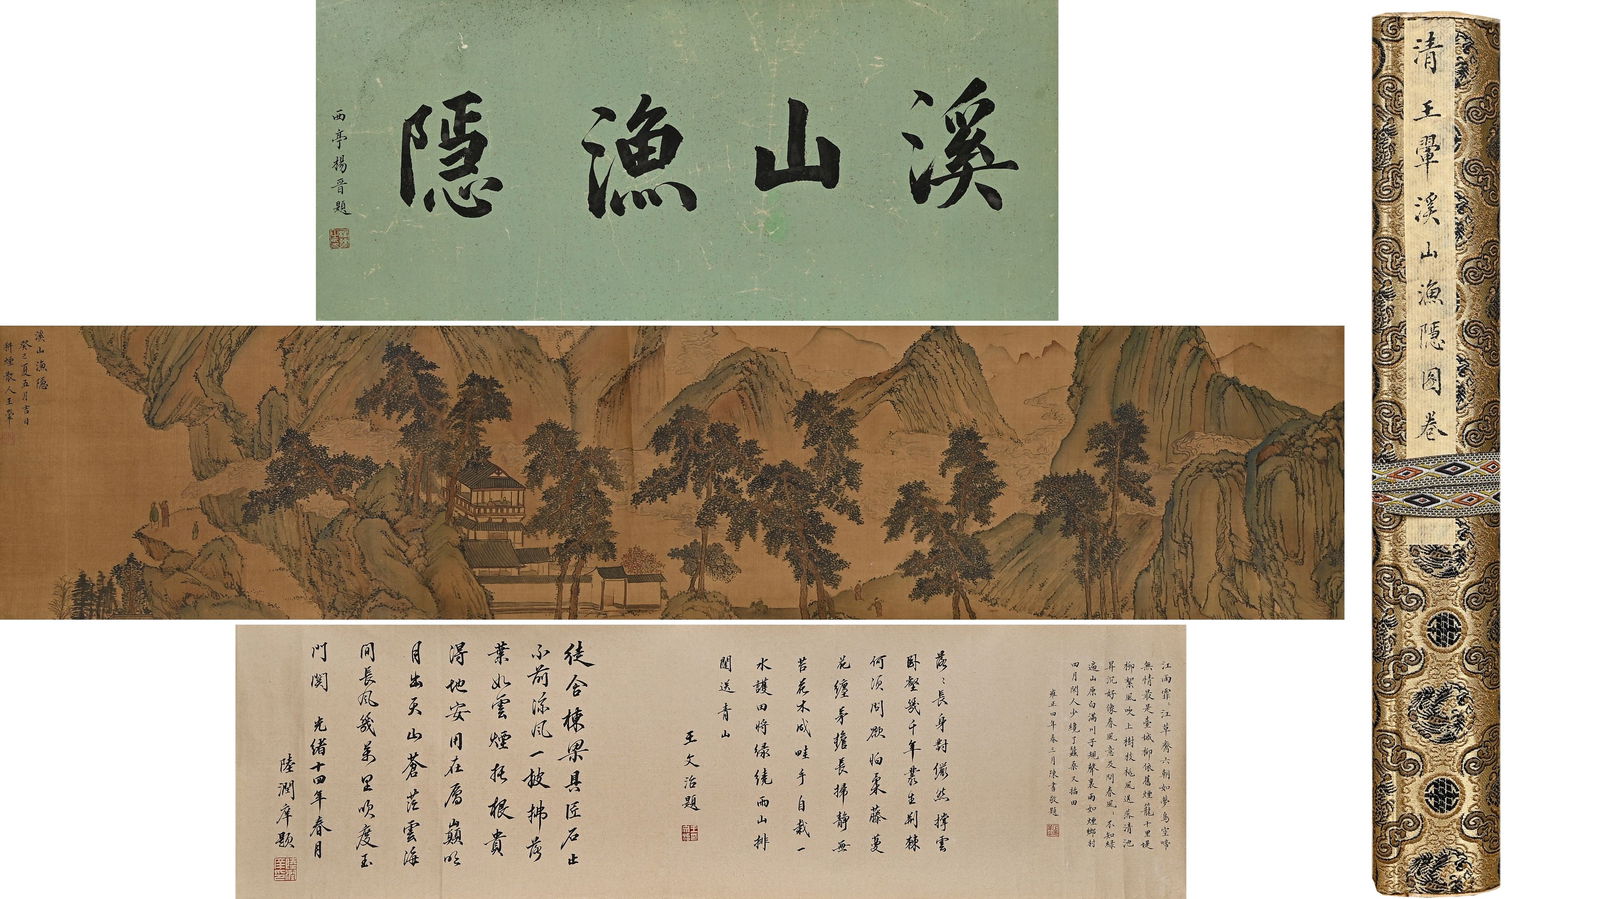 溪山漁隱
西亭楊晉題
清王翬溪山漁隱圖卷
溪山漁隱
癸巳夏五月吉日
耕煙散人王翬
江雨霏〻江草齊六朝如夢鳥空啼
無情最是臺城柳依舊煙籠十里堤
柳絮風吹上樹枝桃風送落清池
昇沉好像春風意及問春風〻不知綠
遍山原白滿川子規聲裏雨如煙鄉村
四月閒人少纔了蠶桑又插田
雍正四年春三月陳書敬題
落〻長身對儼然撐雲
臥壑幾千年叢生荊棘
何須問欲怕柔藤蔓
花纏茅檐長掃靜無
苔花木成畦手自栽一
水護田將綠繞兩山排
闥送青山
王文治題
徒令棟梁具匠石止
不前涼風一披拂落
葉如雲煙托根貴
得地安用在厲巔明
月出天山蒼茫雲海
間長風幾萬里吹度玉
門關 光緒十四年春月
陸潤庠題